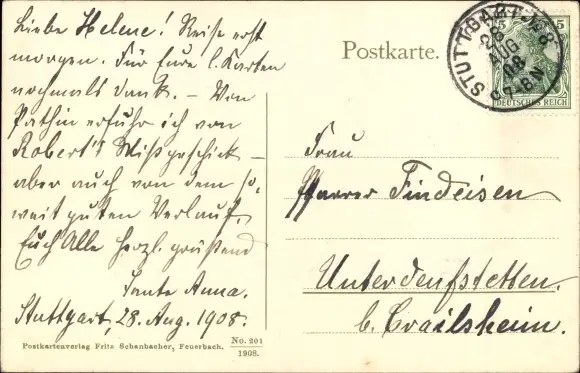 Liebe Helene! Reise erst
morgen. Für Eure l. Karten
nochmals Dank. – Von
Pathin erfuhr ich von
Robert's Mißgeschick –
aber auch von dem so,
weit guten Verlauf.
Euch Alle herzl. grüßend
Tante Anna.
Stuttgart, 28. Aug. 1908.
Postkartenverlag Fritz Schanbacher, Feuerbach.
No. 201
1908.
Postkarte.
STUTTGART No. 8
AUG
08
7-8 N
5
DEUTSCHES REICH
Frau
Pfarrer Findeisen
Unterdeufstetten.
b. Crailsheim.